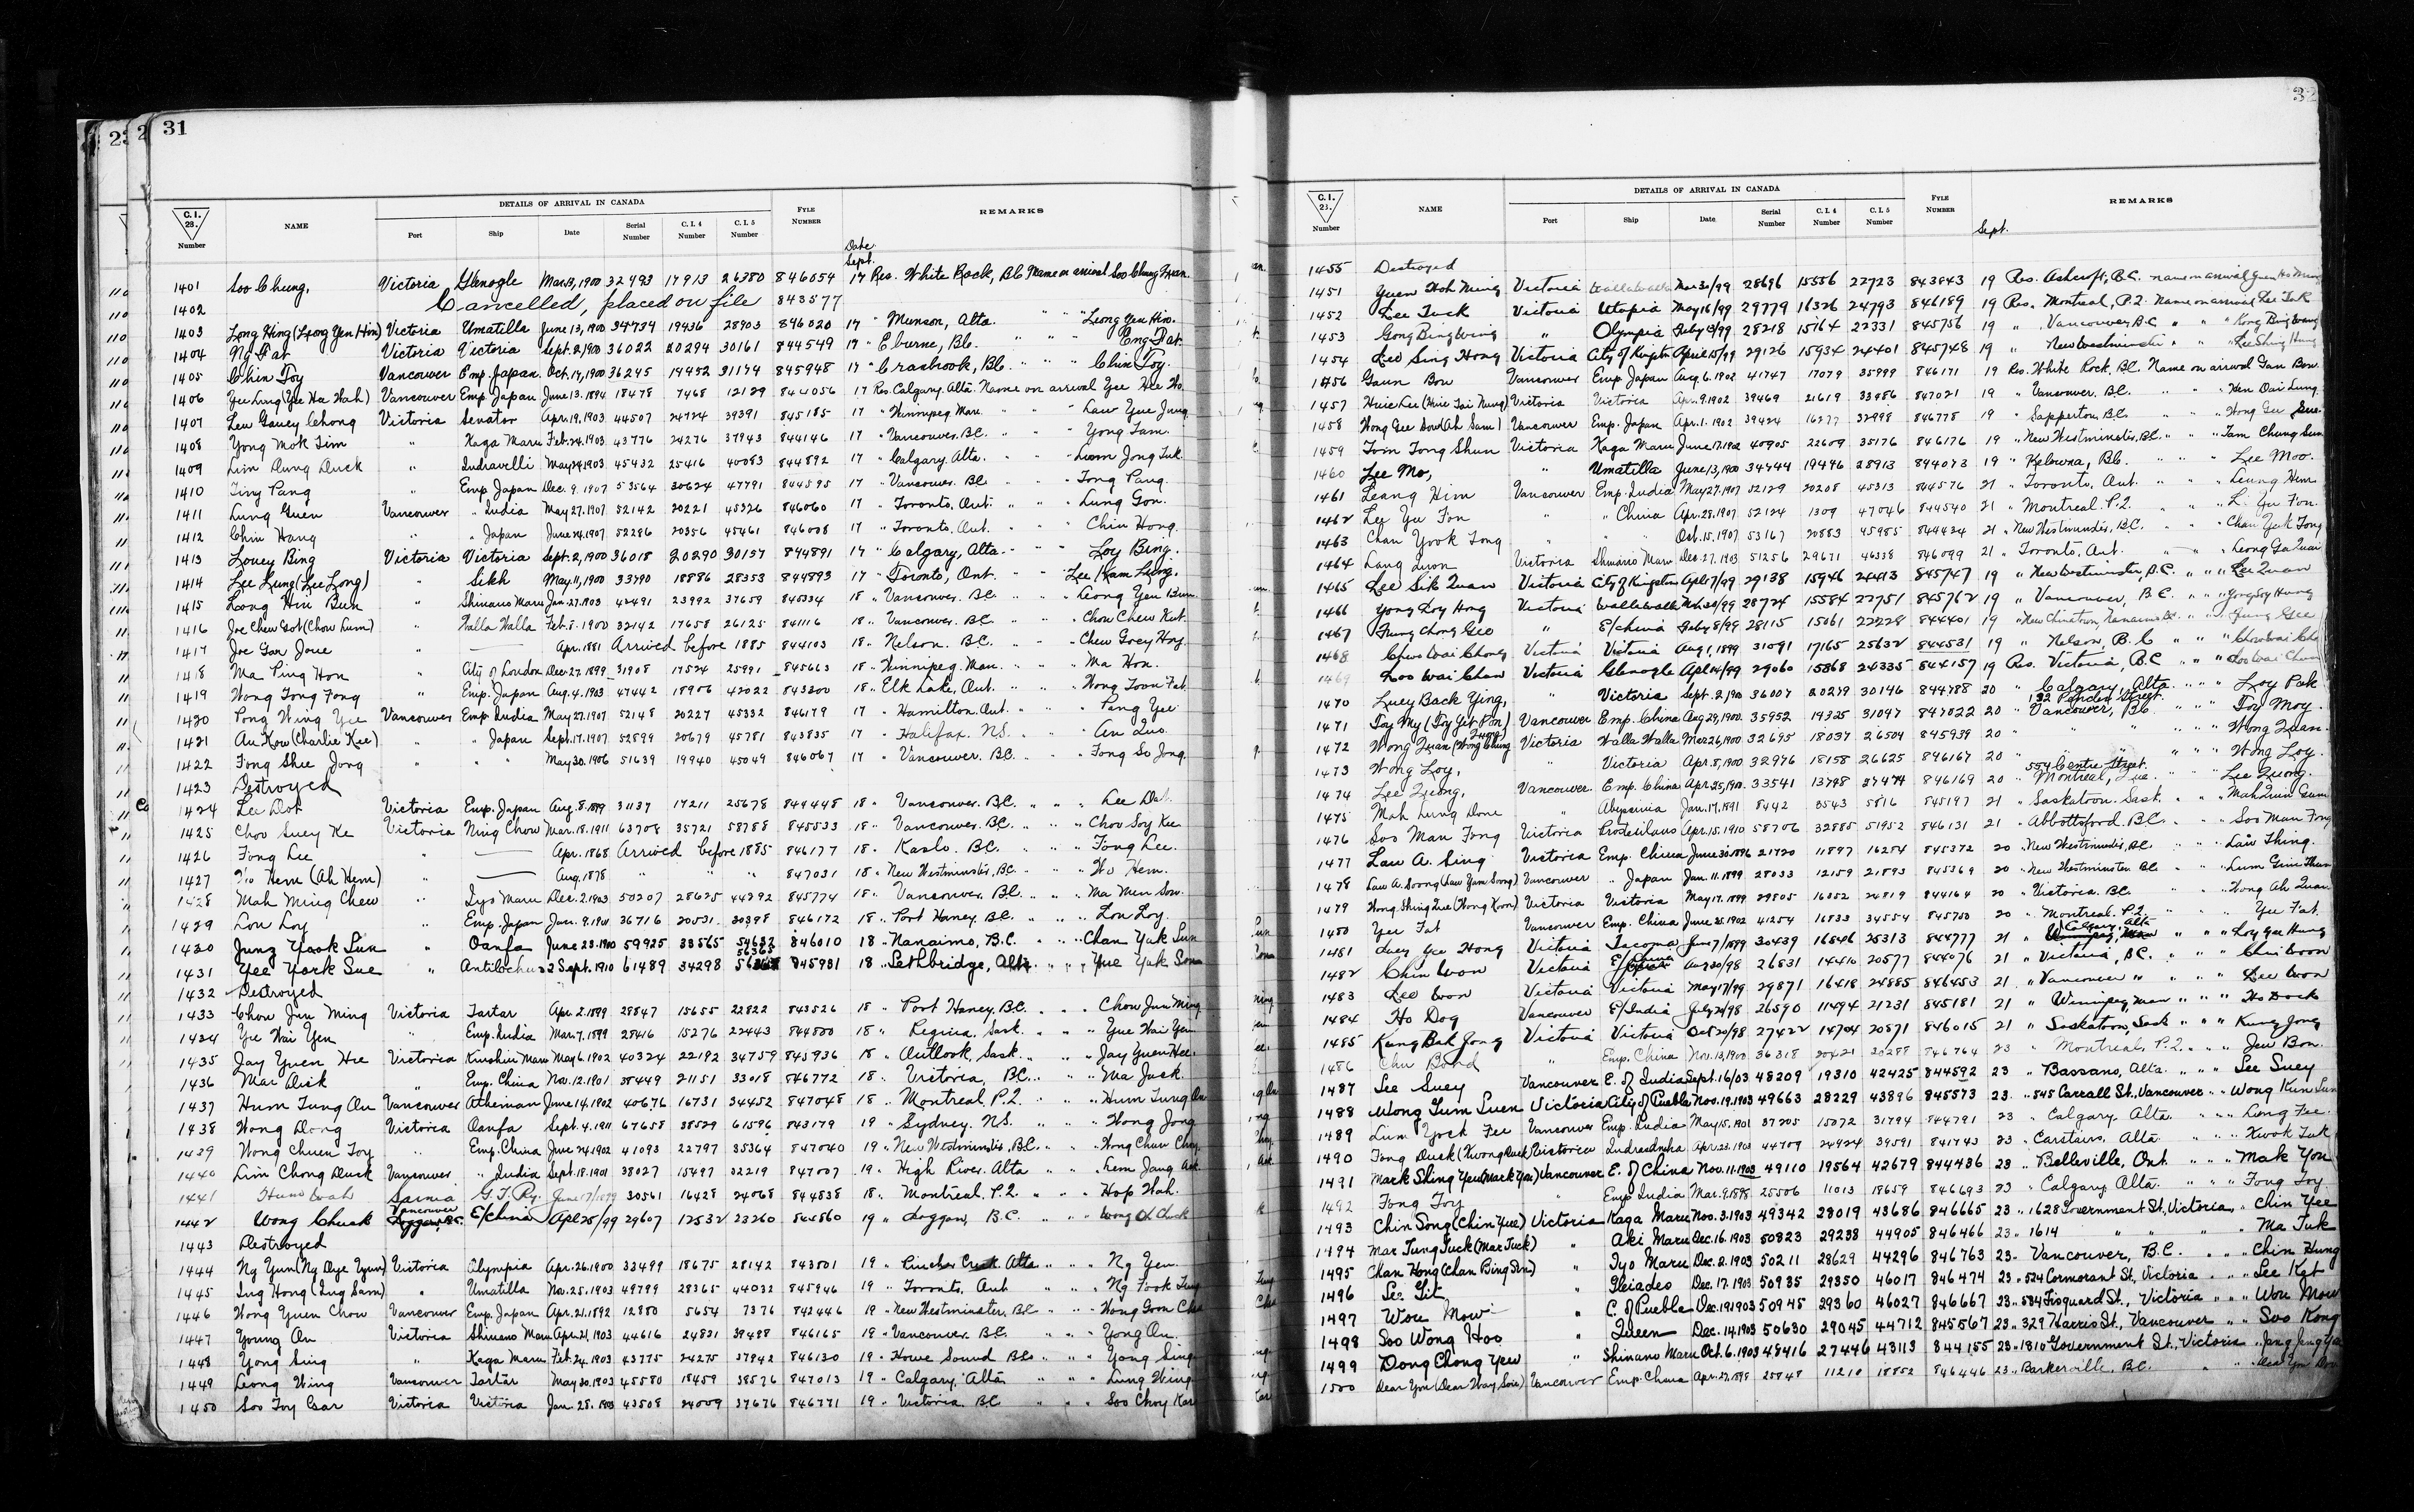 31
DETAILS OF ARRIVAL IN CANADA
C.I. 28. Number NAME Port Ship Date Serial Number C.I.4 Number C.I.5 Number FYLE NUMBER REMARKS
Date Sept.
1401 Soo Cheung, Victoria Glenogle Mar.13,1900 32493 17913 26380 846054 17 Res. White Rock, B.C. Name on arrival Soo Chung
1402 Cancelled, placed on file 843577
1403 Long Hing (Leong Yen Hin) Victoria Umatilla June 13,1900 34734 19436 28903 846020 17 " Munson, Alta. " " " Leong Yen Hin.
1404 Ng Fat Victoria Victoria Sept.2,1900 36022 20294 30161 844549 17 " Eburne, B.C. " " " Eng Fat.
1405 Chin Toy Vancouver Emp. Japan Oct.14,1900 36245 14452 31174 845948 17 " Cranbrook, B.C. " " " Chin Toy.
1406 Yee Lung (Yee Hee Wah) Vancouver Emp. Japan June 13.1894 18478 7468 12129 844056 17 Res. Calgary. Alta. Name on arrival Yee Hee Wo.
1407 Lew Gauey Chong Victoria Senator Apr.19,1903 44507 24724 39391 845185 17 " Winnipeg Man. " " " Law Yue Jung
1408 Yong Mok Tim " Kaga Maru Feb.24.1903 43776 24276 37943 844146 17 " Vancouver. B.C. " " " Yong Tam.
1409 Lim Dung Duck " Indravelli May 24.1903 45432 25416 40083 844892 17 " Calgary. Alta. " " " Luem Jong Tuk.
1410 Ting Pang " Emp. Japan Dec. 9. 1907 53564 30624 47791 844595 17 " Vancouver. B.C. " " " Tong Pang.
1411 Lung Guen Vancouver " India May 27.1907 52142 20221 45326 846060 17 " Toronto, Ont. " " " Lung Gon.
1412 Chin Hang " " Japan June 24.1907 52286 20356 45461 846008 17 " Toronto. Ont. " " " Chin Hong.
1413 Louey Bing Victoria Victoria Sept.2,1900 36018 20290 30157 844891 17 " Calgary, Alta. " " " Loy Bing.
1414 Lee Lung (Lee Long) " Sikh May.11,1900 33790 18886 28353 844893 17 " Toronto, Ont. " " Lee Ham Leong.
1415 Leong Hin Bun " Shinano Maru Jan.27.1903 42491 23992 37659 845334 18 " Vancouver. B.C. " " " Leong Yen Bun
1416 Joe Chew Got (Chow Lum) " Walla Walla Feb.8.1900 32142 17658 26125 84116 18 " Vancouver. B.C. " " " Chow Chew Kut.
1417 Joe Gan Joue " — Apr.1881 Arrived before 1885 844103 18 " Nelson. B.C. " " " Chew Gocy Hoy.
1418 Ma Ping Hon " City of London Dec.27.1899 31908 17524 25991 845663 18 " Winnipeg. Man. " " " Ma Hon.
1419 Wong Tong Fong " Emp. Japan Aug.4.1903 47442 18906 42022 843200 18 " Elk Lake, Ont. " " " Wong Toon Fat.
1420 Pong Wing Yee Vancouver Emp. India May 27.1907 52148 20227 45332 846179 17 " Hamilton. Ont. " " " Pang Yee
1421 Au Kow (Charlie Kee) " " Japan Sept.17.1907 52899 20679 45781 843835 17 " Halifax. N.S. " " " An Quo.
1422 Fong Shee Jong " " " May 30.1906 51639 19940 45049 846067 17 " Vancouver. B.C. " " " Fong So Jong.
1423 Destroyed
1424 Lee Dot Victoria Emp. Japan Aug.8.1899 31137 17211 25678 844448 18 " Vancouver. B.C. " " " Lee Dat.
1425 Choo Suey Ke Victoria Ning Chow Mar.18.1911 63708 35721 58788 845533 18 " Vancouver. B.C. " " " Chov Soy Kee
1426 Fong Lee " — Apr. 1868 Arrived before 1885 846177 18 " Kaslo. B.C. " " " Fong Lee.
1427 Wo Hem (Ah Hem) " — Aug.1878 " " " 847031 18 " New Westminster, B.C. " " " Wo Hem.
1428 Mah Ming Chew " Iyo Maru Dec.2.1903 50207 28625 44292 845774 18 " Vancouver, B.C. " " " Ma Men Sow.
1429 Lou Loy " Emp. Japan Jan.9.1901 36716 20531 30398 846172 18 " Port Haney, B.C. " " " Lou Loy.
1430 Jung Yook Sun " Oanfa June 23.1910 59925 33565 54632 846010 18 " Nanaimo, B.C. " " " Chan Yuk Sun
1431 Yee York Sue " Antilochus 2 Sept.1910 61489 34298 56365 845931 18 " Lethbridge, Alta. " " " Yue Yuk Sona
1432 Destroyed
1433 Chow Jun Ming Victoria Tartar Apr.2.1899 28847 15655 22822 843526 18 " Port Haney, B.C. " " " Chow Jun Ming
1434 Yee Wai Yen " Emp. India Mar.7.1899 28416 15276 22443 844800 18 " Regina, Sask. " " " Yue Wai Yen
1435 Jay Yuen Hee Victoria Kinshiu Maru May 6.1902 40324 22192 34759 845936 18 " Outlook, Sask. " " " Jay Yuen Hee.
1436 Mar Dick " Emp. China Nov.12.1901 38449 21151 33018 846772 18 " Victoria, B.C. " " " Ma Jack.
1437 Hum Tung On Vancouver Athenian June 14.1902 40676 16731 34452 847048 18 " Montreal. P.Q. " " " Hum Tung On
1438 Wong Dong Victoria Oanfa Sept.4.1911 67658 38529 61596 843179 19 " Sydney. N.S. " " " Wong Jong.
1439 Wong Chuen Toy " Emp. China June 24.1902 41093 22797 35364 847040 19 " New Westminster, B.C. " " " Wong Chun Choy
1440 Lim Chong Duck Vancouver " India Sept.18.1901 38027 15497 32219 847007 19 " High River. Alta " " " Lem Jang Ack
1441 Hum Wah Sarnia G.T. Ry. June 7/1899 30561 16428 24068 844838 18 " Montreal. P.Q. " " " Hop Wah.
1442 Wong Chuck Vancouver E/China Apl 25/99 29607 12532 23260 844860 19 " Laggan, B.C. " " " Wong Ah Chuck
1443 Destroyed
1444 Ng Yun (Ng Duye Yun) Victoria Olympia Apr.26.1900 33499 18675 28142 843801 19 " Pincher Creek. Alta. " " " Ng Yen.
1445 Ing Hong (Ing Sam) " Umatilla Nov.25.1903 49799 28365 44032 845946 19 " Toronto, Ont " " " Ng Fook Tung
1446 Wong Yuen Chow Vancouver Emp. Japan Apr.21.1892 12880 5654 7376 842446 19 " New Westminster, B.C. " " " Wong Goon Chew
1447 Young On Victoria Shinano Maru Apr.21,1903 44616 24821 39488 846165 19 " Vancouver. B.C. " " " Yong On.
1448 Yong Sing " Kaga Maru Feb.24.1903 43775 24275 37942 846130 19 " Howe Sound B.C. " " " Yong Sing
1449 Leong Wing Vancouver Tartar May 30.1903 45580 18459 38576 847013 19 " Calgary. Alta " " " Lung Wing
1450 Soo Toy Csar Victoria Victoria Jan.28.1903 43508 24009 37676 846771 19 " Victoria. B.C. " " " Soo Choy Kar
32
DETAILS OF ARRIVAL IN CANADA
C.I. 23. Number NAME Port Ship Date Serial Number C.I.4 Number C.I.5 Number FYLE NUMBER REMARKS
Sept.
1455 Destroyed
1451 Yuen Hoh Ming Victoria Walla Walla Mar 30/99 28696 15556 22723 843843 19 Res. Ashcroft, B.C. name on arrival Yuen Ho Ming
1452 Lee Tuck Victoria Utopia May 16/99 29779 16326 24793 846189 19 Res. Montreal, P.Q. Name on arrival Lee Tuk
1453 Gong Bing Wing " Olympia Feby 13/99 28218 15164 22331 845756 19 " Vancouver B.C. " " " Kong Bing Wang
1454 Leo Sing Hong Victoria City of Kingston April 15/99 29126 15934 24401 845748 19 " New Westminster " " " Lee Shing Hung
1456 Gaun Bow Vancouver Emp. Japan Aug.6.1902 41747 17079 35999 846171 19 Res. White Rock, B.C. Name on arrival Gan Bow.
1457 Huie Lee (Huie Tai Nung) Victoria Victoria Apr.9.1902 39469 21619 33986 847021 19 " Vancouver. B.C. " " " Hen Dai Lung.
1458 Wong Gee Dow (Ah Sam) Vancouver Emp. Japan Apr.1.1902 39424 16277 32998 846778 19 " Sapperton, B.C. " " " Wong Gee Sue.
1459 Tom Tong Shun Victoria Kaga Maru June 17.1902 40905 22609 35176 846176 19 " New Westminster, B.C. " " " Tam Chung Sun
1460 Lee Mo, " Umatilla June 13,1900 34744 19446 28913 844073 19 " Kelowna, B.C. " " " Lee Moo.
1461 Leang Him Vancouver Emp. India May 27.1907 52129 20208 45313 844576 21 " Toronto, Ont. " " " Leung Hem
1462 Lee Yee Fon " " China Apr.28.1907 52124 1309 47046 844540 21 " Montreal. P.Q. " " " L. Yu Fon.
1463 Chan Yook Tong " " " Oct.15.1907 53167 20883 45985 844424 21 " New Westminster, B.C. " " " Chan Yuk Tong
1464 Lang Quon Victoria Shinano Maru Dec.27.1903 51256 29671 46338 846099 21 " Toronto. Ont. " " " Leong Ga Quai
1465 Lee Sik Quan Victoria City of Kingston Apl 17/99 29138 15946 24413 845747 19 " New Westminster, B.C. " " " Lee Quan
1466 Yong Loy Hng Victoria Walla Walla Mch 30/99 28724 15584 22751 845762 19 " Vancouver, B.C. " " " Yong Loy Hung
1467 Fung Chong Gee " E/China Feby 8/99 28115 15061 22228 844401 19 " New Chinatown, Nanaimo B.C. " " " Fung Gee
1468 Chew Wai Chong Victoria Victoria Aug 1,1899 31091 17165 25632 844531 19 " Nelson, B.C. " " " Chow Wai
1469 Loo Wai Chan Victoria Glenogle Apl 14/99 29060 15868 24335 844157 19 Res. Victoria, B.C. " " " Loo Wai Chun
1470 Luey Back Ying, " Victoria Sept.2,1900 36007 20279 30146 844788 20 " Calgary, Alta. " " " Loy Pak
1471 Toy My (Toy Git Pon) Vancouver Emp. China Aug 29,1900 35952 14325 31047 847022 20 " 132 Pender Street Vancouver, B.C. " " " Toy Moy.
1472 Wong Quan (Wong Chung Quon) Victoria Walla Walla Mar 26,1900 32695 18037 26504 845939 20 " " " " " Wong Quan.
1473 Wong Loy, " Victoria Apr.8,1900 32976 18158 26625 846167 20 " " " " " Wong Loy.
1474 Lee Quong, Vancouver. Emp. China Apr.25,1900 33541 13798 27474 846169 20 " 554 Centre Street. Montreal, Que. " " " Lee Quong.
1475 Mah Lung Done " Abyssinia Jan.17.1891 8442 3543 5816 845197 21 " Saskatoon. Sask. " " " Mah Quin Gum
1476 Soo Man Fong Victoria Protesilaus Apr.15.1910 58706 32885 51952 846131 21 " Abbotsford. B.C. " " " Soo Man Fong
1477 Law A. Sing Victoria Emp. China June 30.1896 21720 11897 16254 845372 20 " New Westminster, B.C. " " " Law Thing.
1478 Law A. Soong (Law Yam Soong) Vancouver " Japan Jan.11.1899 28033 12159 21893 845369 20 " New Westminster B.C. " " " Lum Gim Thun
1479 Wong Shing Quee (Wong Koon) Victoria Victoria May 17.1899 29805 16352 24819 844164 20 " Victoria. B.C. " " " Wong Ah Quan
1480 Yee Fat Vancouver Emp. China June 25.1902 41254 16833 34554 845700 20 " Montreal. P.Q. " " " Yee Fat.
1481 Luey Gee Hong Victoria Tacoma June 7/1899 30439 16846 25313 844777 21 " Calgary, Alta " " " Loy Gee Hung
1482 Chin Won Victoria E/China Aug 30/98 26831 14410 20577 844076 21 " Victoria, B.C. " " " Chin Woon
1483 Lee Won Victoria Victoria May 17/99 29871 16418 24885 846453 21 " Vancouver " " " " Lee Won
1484 Ho Dog Vancouver E/India July 26/98 26590 11494 21231 845181 21 " Winnipeg Man " " " Ho Dock
1485 Kung Bak Jong Victoria Victoria Oct 20/98 27422 14704 20871 846015 21 " Saskatoon, Sask " " " Kung Jong
1486 Chu Bond " Emp. China Nov.13,1900 36318 20421 30288 846764 23 " Montreal, P.Q. " " " Jew Bon.
1487 Lee Suey Vancouver E. of India Sept.16/03 48209 19310 42425 844592 23 " Bassano, Alta. " " " Lee Suey
1488 Wong Gum Luen Victoria City of Puebla Nov.19.1903 49663 28229 43896 845573 23 " 545 Carrall St., Vancouver " " Wong Kum Lun
1489 Lum York Fee Vancouver Emp. India May 15.1901 37205 15072 31794 844791 23 " Calgary. Alta. " " " Lung Fee.
1490 Fong Duck (Kwong Duck) Victoria Indrasamha Apr.23.1903 44709 24924 39591 841743 23 " Carstairs, Alta. " " " Kwok Tuk
1491 Mark Shing Yeu (Mark You) Vancouver E. of China Nov.11.1903 49110 19564 42679 844436 23 " Belleville, Ont. " " " Mak You
1492 Fong Toy " Emp. India Mar.9.1898 25506 11013 18659 846693 23 " Calgary. Alta. " " " Fong Toy.
1493 Chin Song (Chin Yuee) Victoria Kaga Maru Nov.3.1903 49342 28019 43686 846665 23 " 1628 Government St., Victoria " " Chin Yee
1494 Mar Tung Tuck (Mar Tuck) " Aki Maru Dec.16.1903 50823 29238 44905 846466 23 " 1614 " " " " Ma Tuk
1495 Chan Hong (Chan Bing Sun) " Iyo Maru Dec.2.1903 50211 28629 44296 846763 23 " Vancouver, B.C. " " " Chin Hung
1496 Lee Git " Pleiades Dec.17.1903 50935 29350 46017 846474 23 " 524 Cormorant St., Victoria " " " Lee Kat
1497 Wou Mow " C. of Puebla Dec.19.1903 50945 29360 46027 846667 23 " 534 Fisguard St., Victoria " " " Wou Mow
1498 Soo Wong Hoo " Queen Dec.14.1903 50630 29045 44712 845567 23 " 329 Harris St., Vancouver " " Soo Kong
1499 Dong Chong Yew " Shinano Maru Oct.6.1903 48416 27446 43113 844155 23 " 1810 Government St., Victoria " Jang Jing
1500 Dear You (Dear Way Soin) Vancouver Emp. China Apr.27.1898 25848 11210 18852 846446 23 " Barkerville, B.C. " "